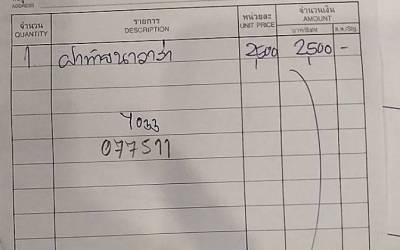 ADDRESS
จำนวน รายการ หน่วยละ จำนวนเงิน
QUANTITY DESCRIPTION UNIT PRICE AMOUNT
บาท/Baht ส.ต./Stg.
1 ฝาท้ายนาวาร่า 2500 2500 -
077511